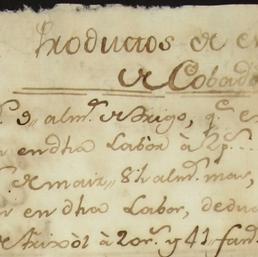 Productos de e
de Cobad
s. 9,, almˢ. de trigo, q.ᵉ e
en dha Labor à 2 p.
de maiz,, 81 almˢ. mas,
r en dha Labor, dedu
frixòl à 20 rˢ. y 41 fan